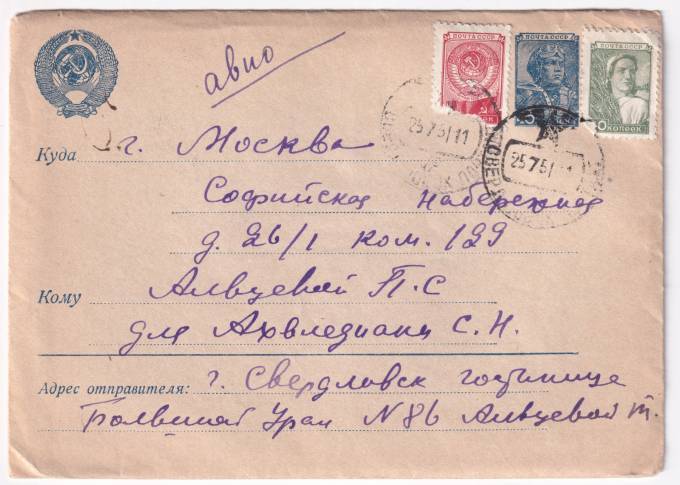 авио
ПОЧТА СССР
ПОЧТА СССР
ПОЧТА СССР
КОПЕЕК
25 7 51 11
25 7 51
СВЕРДЛ
Куда г. Москва
Софийская набережная
д. 26/1 ком. 129
Кому Альцевой П.С
для Ахвледиани С.Н.
Адрес отправителя: г. Свердловск гостинице
Большой Урал N 86 Альцевой т.